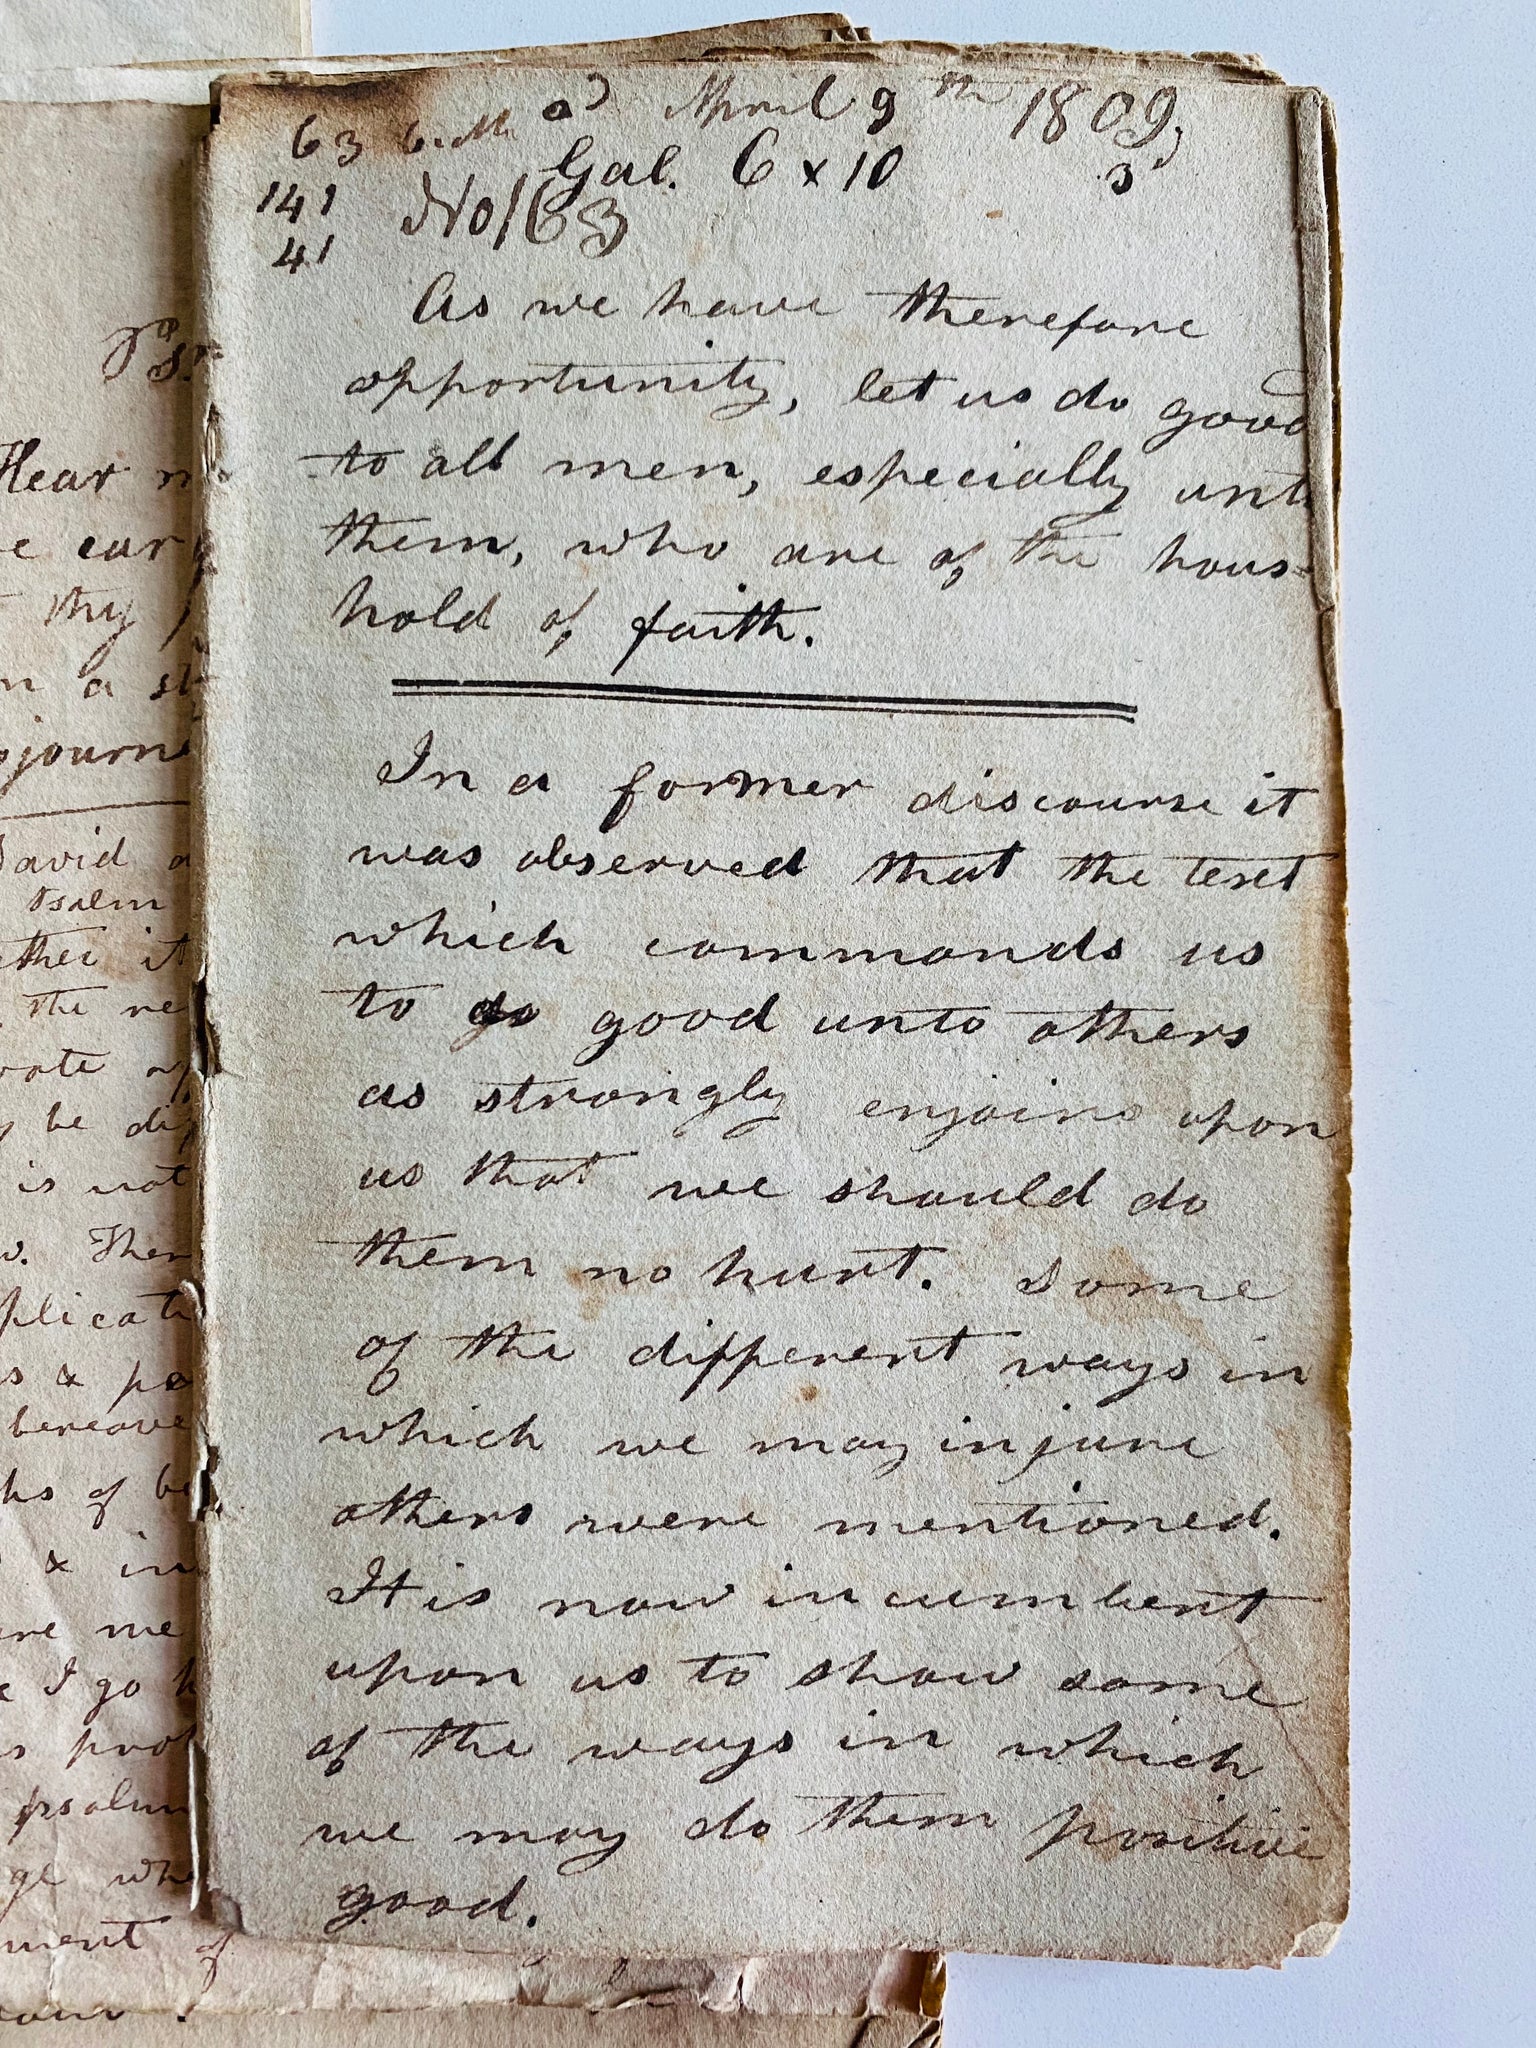 April 9th 1809
63
Gal. 6 x 10
3d
141
No 163
41
As we have therefore
opportunity, let us do good
to all men, especially unto
them, who are of the hous=
hold of faith.
In a former discourse it
was observed that the text
which commands us
to do good unto others
as strongly enjoins upon
us that we should do
them no hurt. Some
of the different ways in
which we may injure
others were mentioned.
It is now incumbent
upon us to show some
of the ways in which
we may do them positive
good.
Hear
ear
thy
a
David
Psalm
it
the
be
is not
&
of
& in
me
I go
psalm
of